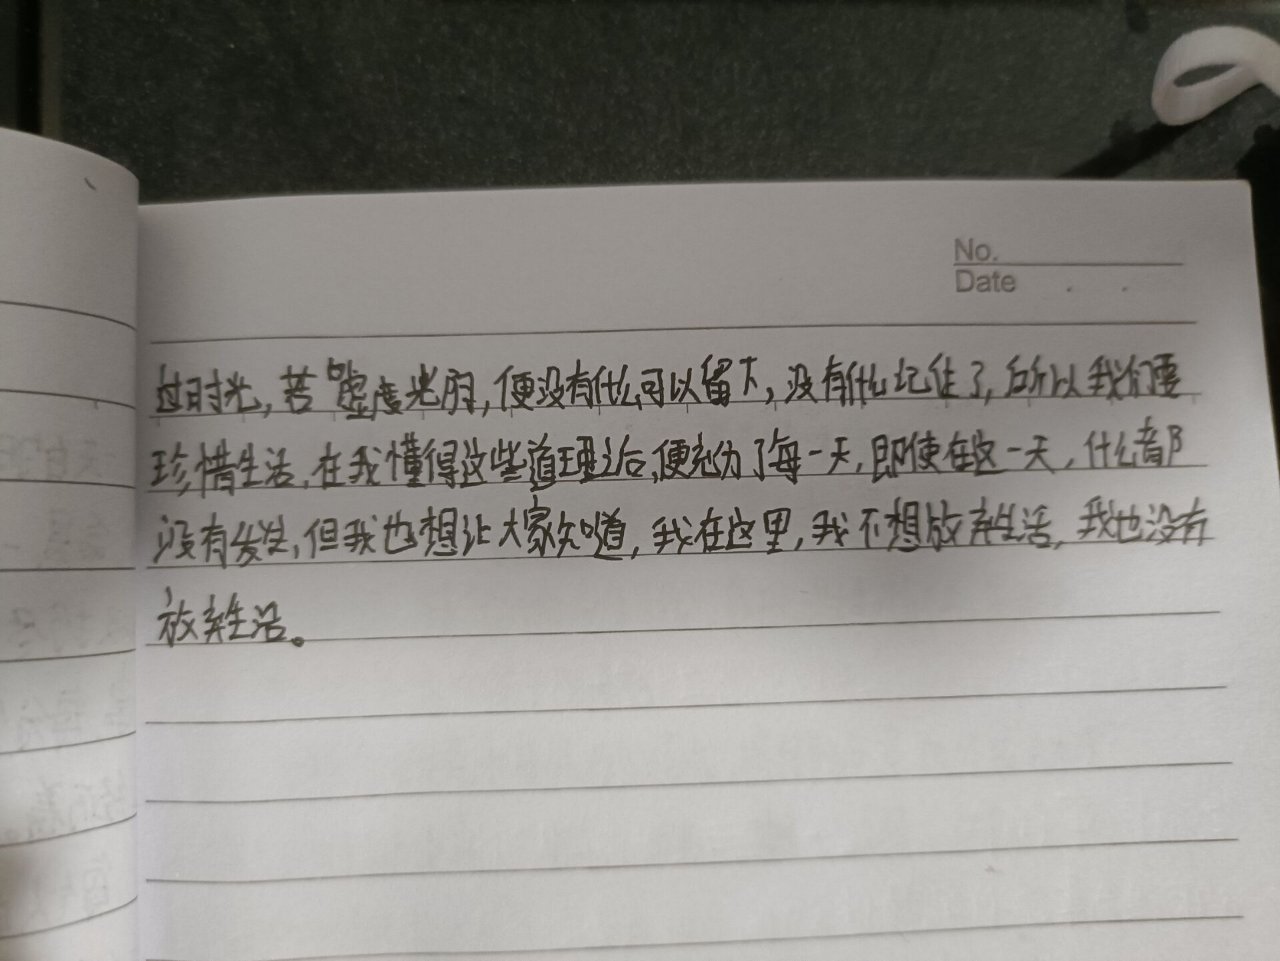 No.
Date
过时光,若虚度光阴,便没有什么可以留下,没有什么记住了,所以我们要
珍惜生活,在我懂得这些道理之后,便充分了每一天,即使在这一天,什么都
没有发生,但我也想让大家知道,我在这里,我不想放弃生活,我也没有
放弃生活。